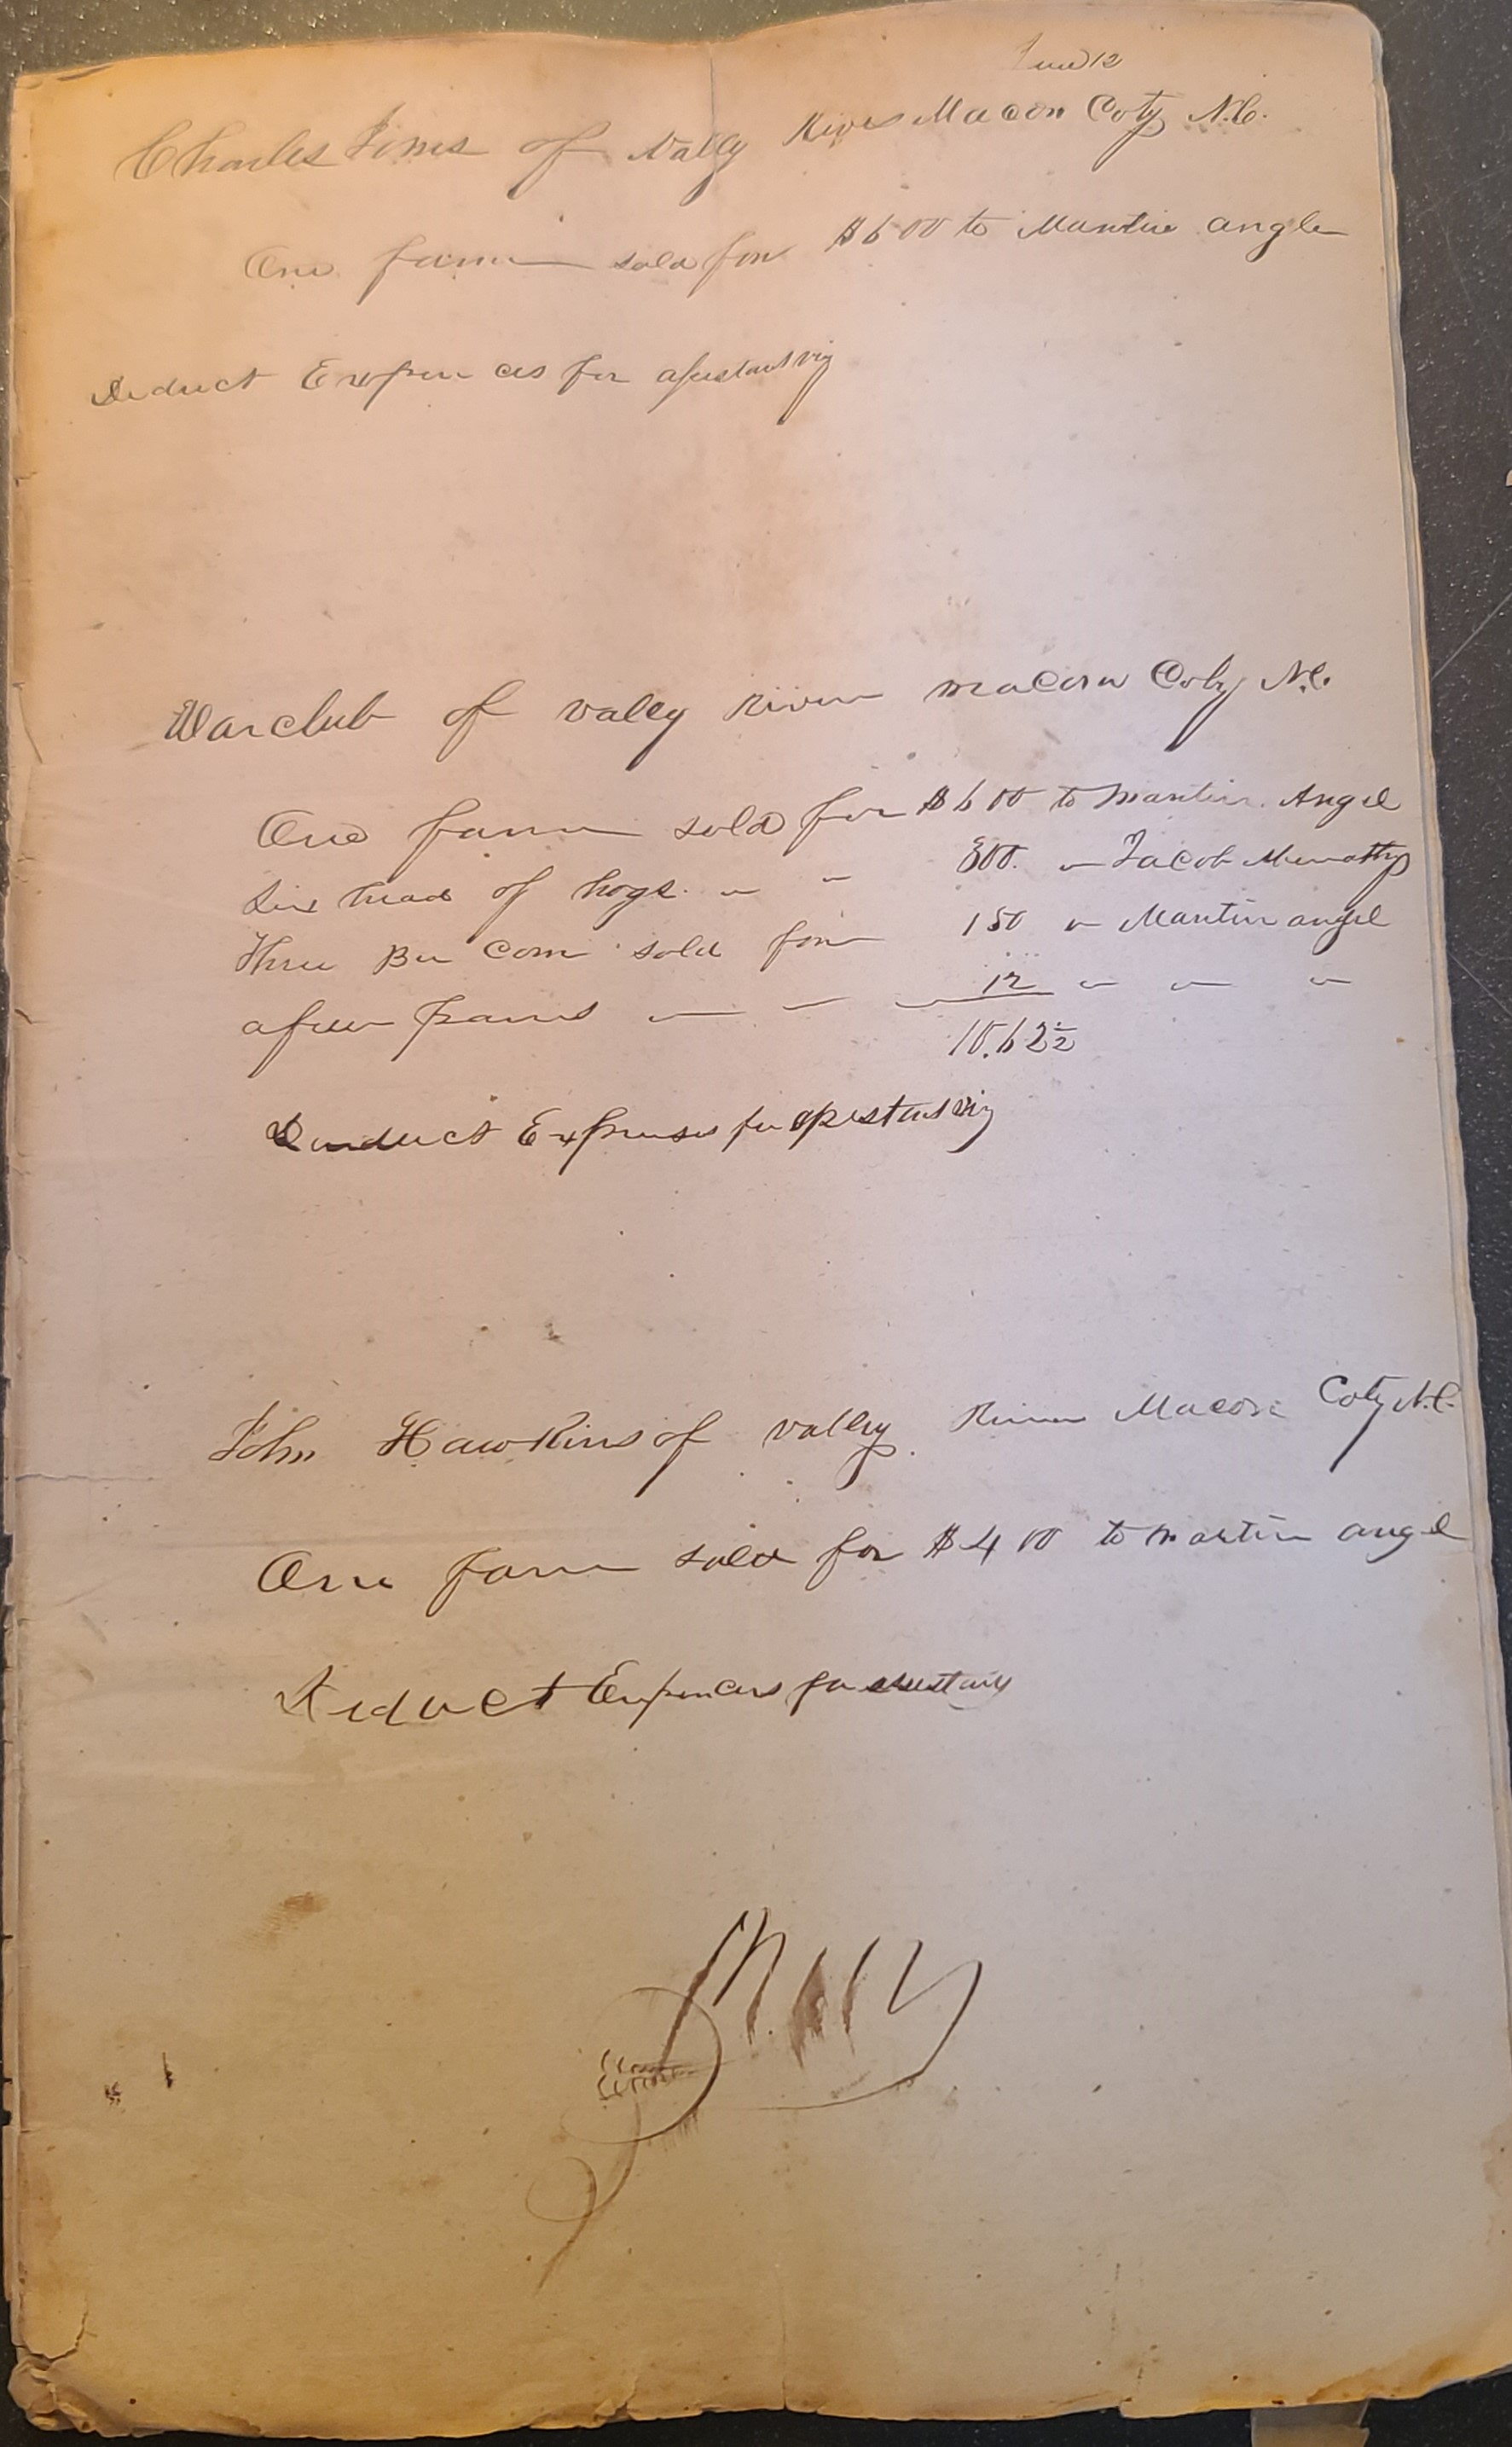 June 12
Charles of Vally River Macon Coty N.C.
One farm sold for $6 00 to Martin angle
Deduct Expen ces for
Warclub of vally River macon Coty N.C.
One farm sold for $6 00 to Martin Angel
Six head of hogs " " 300. " Jacob
Three Bu Corn sold for 150 " Martin angel
a few 12 " " "
10.62½
Deduct Expenses for
John Hawkins of valley River Macon Coty N.C.
One farm sold for $4 00 to martin angel
Deduct Expences for